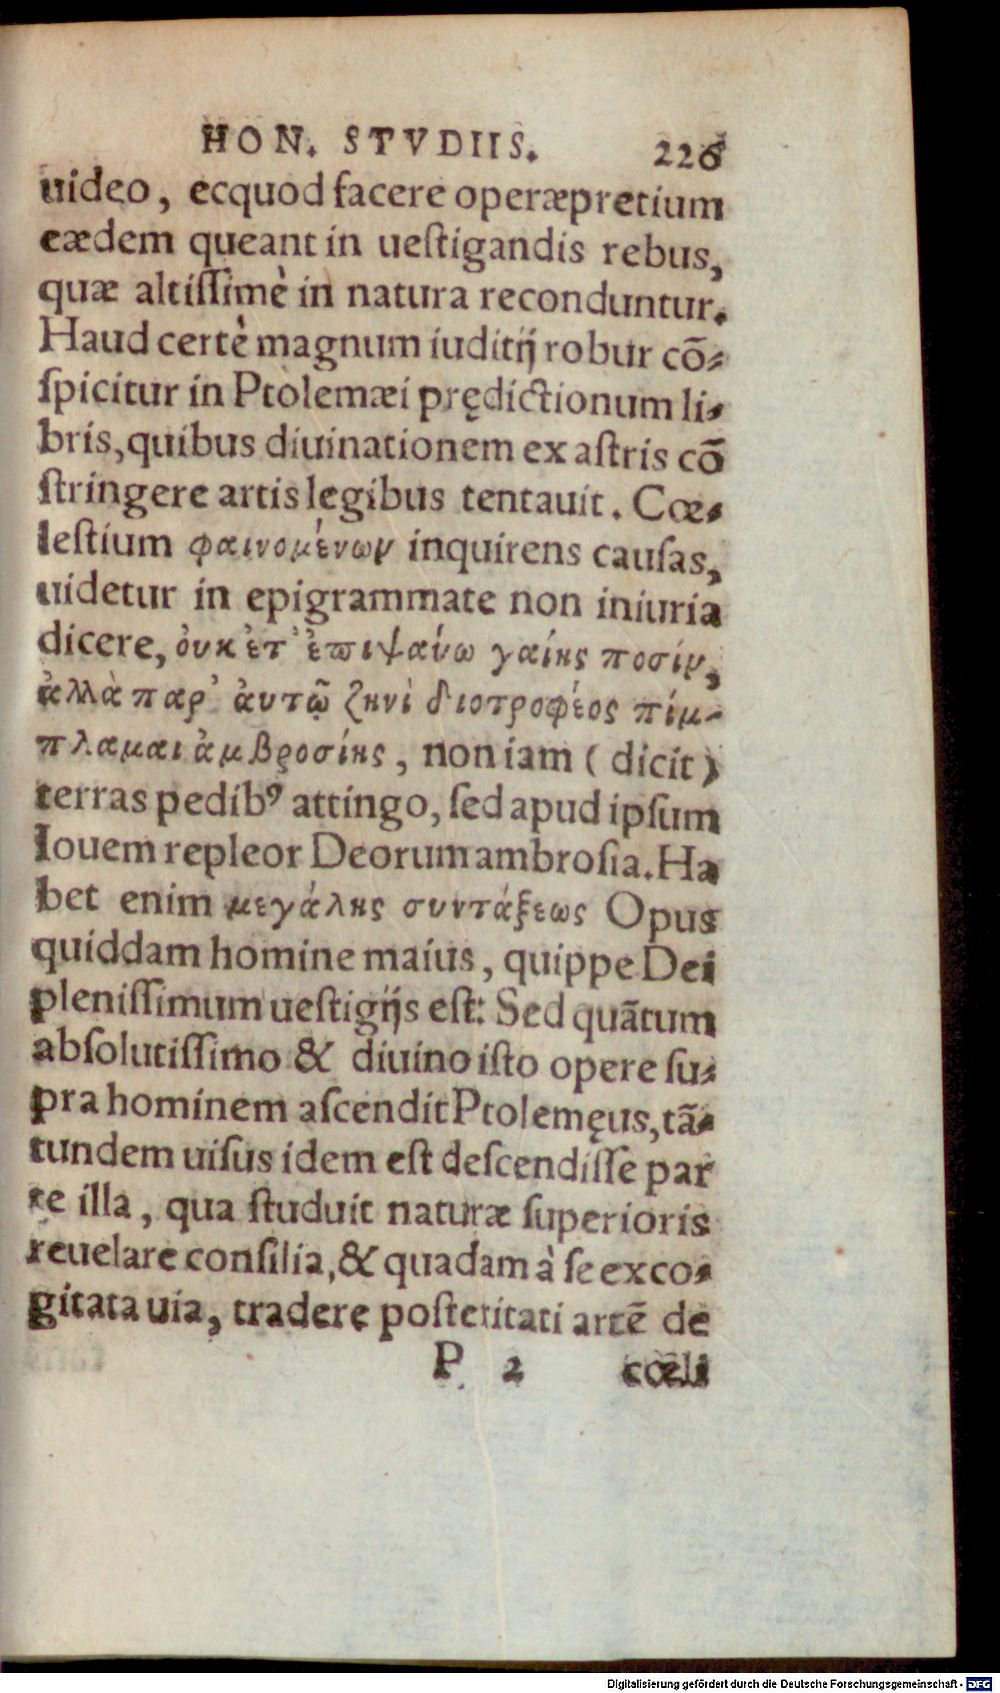 HON. STVDIIS. 226
uideo, ecquod facere operæpretium
eædem queant in ueſtigandis rebus,
quæ altiſſimè in natura reconduntur.
Haud certè magnum iuditij robur cō-
ſpicitur in Ptolemæi prędictionum li-
bris, quibus diuinationem ex aſtris cō
ſtringere artis legibus tentauit. Cœ-
leſtium φαινομένων inquirens cauſas,
uidetur in epigrammate non iniuria
dicere, ὀυκ ἐτ' ἐπιψαύω γαίης ποσίν,
ἀλλὰ παρ' ἀυτῷ ζηνὶ διοτροφέος πίμ-
πλαμαι ἀμβροσίης, non iam (dicit)
terras pedibꝰ attingo, ſed apud ipſum
Iouem repleor Deorum ambroſia. Ha
bet enim μεγάλης συντάξεως Opus
quiddam homine maius, quippe Dei
pleniſſimum ueſtigijs eſt: Sed quātum
abſolutiſſimo & diuino iſto opere ſu-
pra hominem aſcendit Ptolemęus, tā-
tundem uiſus idem eſt deſcendiſſe par
te illa, qua ſtuduit naturæ ſuperioris
reuelare conſilia, & quadam à ſe exco-
gitata uia, tradere poſteritati artē de
P 2 cœli
Digitalisierung gefördert durch die Deutsche Forschungsgemeinschaft - DFG